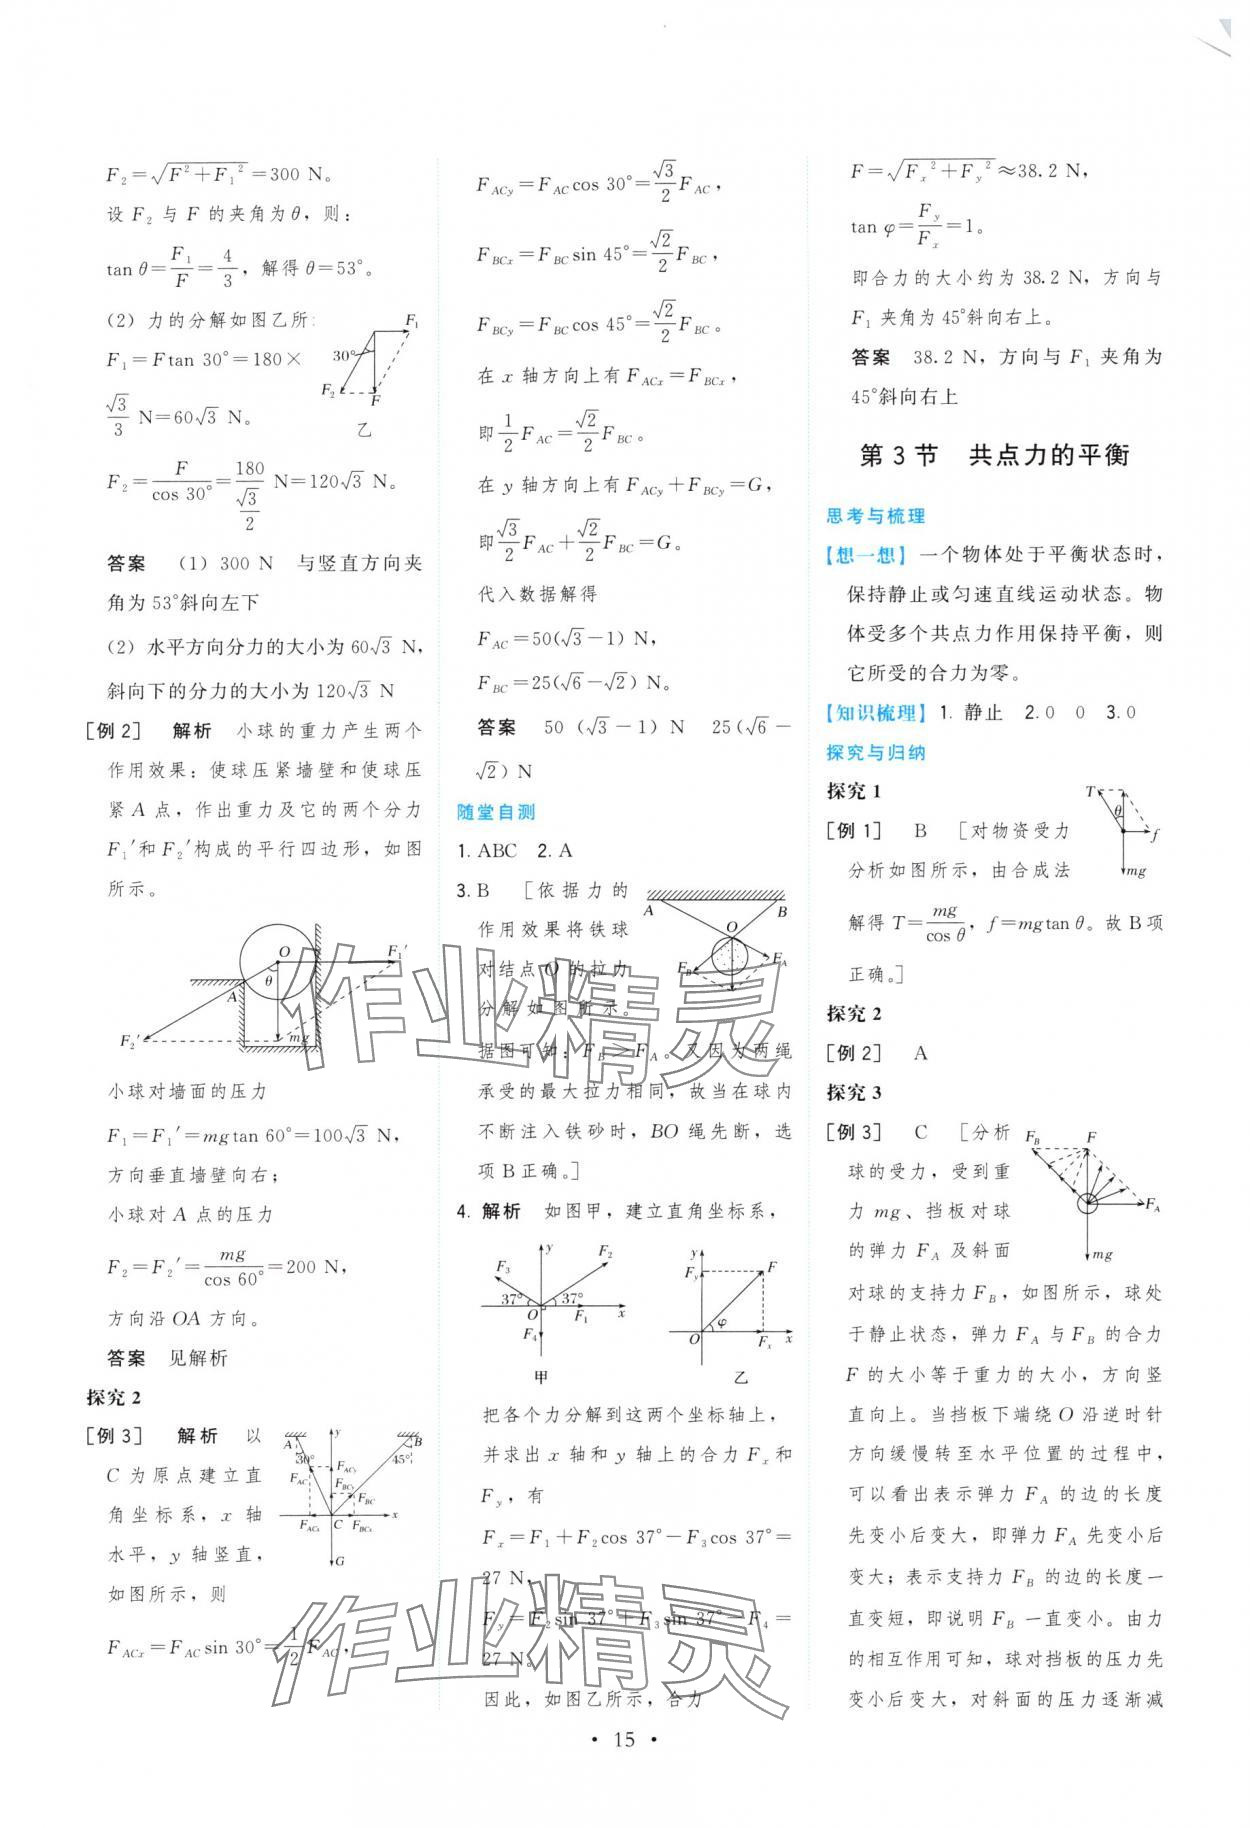 F₂=√(F²+F₁²)=300 N。
设 F₂ 与 F 的夹角为θ，则：
tan θ=F₁/F=4/3，解得θ=53°。
(2) 力的分解如图乙所
F₁=Ftan 30°=180×
√3/3 N=60√3 N。
F₂=F/cos 30°=180/(√3/2) N=120√3 N。
30°
F₁
F₂
F
乙
答案 (1) 300 N 与竖直方向夹
角为 53°斜向左下
(2) 水平方向分力的大小为 60√3 N,
斜向下的分力的大小为 120√3 N
[例2] 解析 小球的重力产生两个
作用效果：使球压紧墙壁和使球压
紧 A 点，作出重力及它的两个分力
F₁′和 F₂′构成的平行四边形，如图
所示。
O
F₁′
θ
A
F₂′
mg
小球对墙面的压力
F₁=F₁′=mgtan 60°=100√3 N,
方向垂直墙壁向右；
小球对 A 点的压力
F₂=F₂′=mg/cos 60°=200 N,
方向沿 OA 方向。
答案 见解析
探究 2
[例3] 解析 以
C 为原点建立直
角坐标系，x 轴
水平，y 轴竖直，
如图所示，则
A
y
B
30°
45°
F_AC
F_ACy
F_BCy
F_BC
F_ACx
C
F_BCx
x
G
F_ACx=F_AC sin 30°=1/2 F_AC,
F_ACy=F_AC cos 30°=√3/2 F_AC,
F_BCx=F_BC sin 45°=√2/2 F_BC,
F_BCy=F_BC cos 45°=√2/2 F_BC。
在 x 轴方向上有 F_ACx=F_BCx,
即 1/2 F_AC=√2/2 F_BC。
在 y 轴方向上有 F_ACy+F_BCy=G,
即 √3/2 F_AC+√2/2 F_BC=G。
代入数据解得
F_AC=50(√3-1) N,
F_BC=25(√6-√2) N。
答案 50 (√3-1) N 25(√6-
√2) N
随堂自测
1. ABC 2. A
3. B [依据力的
作用效果将铁球
对结点 O 的拉力
分解如图所示。
据图可知：F_B>F_A。又因为两绳
承受的最大拉力相同，故当在球内
不断注入铁砂时，BO 绳先断，选
项 B 正确。]
A
B
O
F_B
F_A
4. 解析 如图甲，建立直角坐标系，
y
F₃
F₂
37°
37°
O
F₁
x
F₄
甲
y
F_y
F
φ
O
F_x
x
乙
把各个力分解到这两个坐标轴上，
并求出 x 轴和 y 轴上的合力 F_x 和
F_y，有
F_x=F₁+F₂cos 37°-F₃cos 37°=
27 N,
F_y=F₂sin 37°+F₃sin 37°-F₄=
27 N。
因此，如图乙所示，合力
F=√(F_x²+F_y²)≈38.2 N,
tan φ=F_y/F_x=1。
即合力的大小约为 38.2 N，方向与
F₁ 夹角为 45°斜向右上。
答案 38.2 N，方向与 F₁ 夹角为
45°斜向右上
第 3 节 共点力的平衡
思考与梳理
【想一想】 一个物体处于平衡状态时，
保持静止或匀速直线运动状态。物
体受多个共点力作用保持平衡，则
它所受的合力为零。
【知识梳理】 1. 静止 2. 0 0 3. 0
探究与归纳
探究 1
[例1] B [对物资受力
分析如图所示，由合成法
解得 T=mg/cos θ，f=mgtan θ。故 B 项
正确。]
T
θ
f
mg
探究 2
[例2] A
探究 3
[例3] C [分析
球的受力，受到重
力 mg、挡板对球
的弹力 F_A 及斜面
对球的支持力 F_B，如图所示，球处
于静止状态，弹力 F_A 与 F_B 的合力
F 的大小等于重力的大小，方向竖
直向上。当挡板下端绕 O 沿逆时针
方向缓慢转至水平位置的过程中，
可以看出表示弹力 F_A 的边的长度
先变小后变大，即弹力 F_A 先变小后
变大；表示支持力 F_B 的边的长度一
直变短，即说明 F_B 一直变小。由力
的相互作用可知，球对挡板的压力先
变小后变大，对斜面的压力逐渐减
F_B
F
F_A
mg
作业精灵
作业精灵
• 15 •